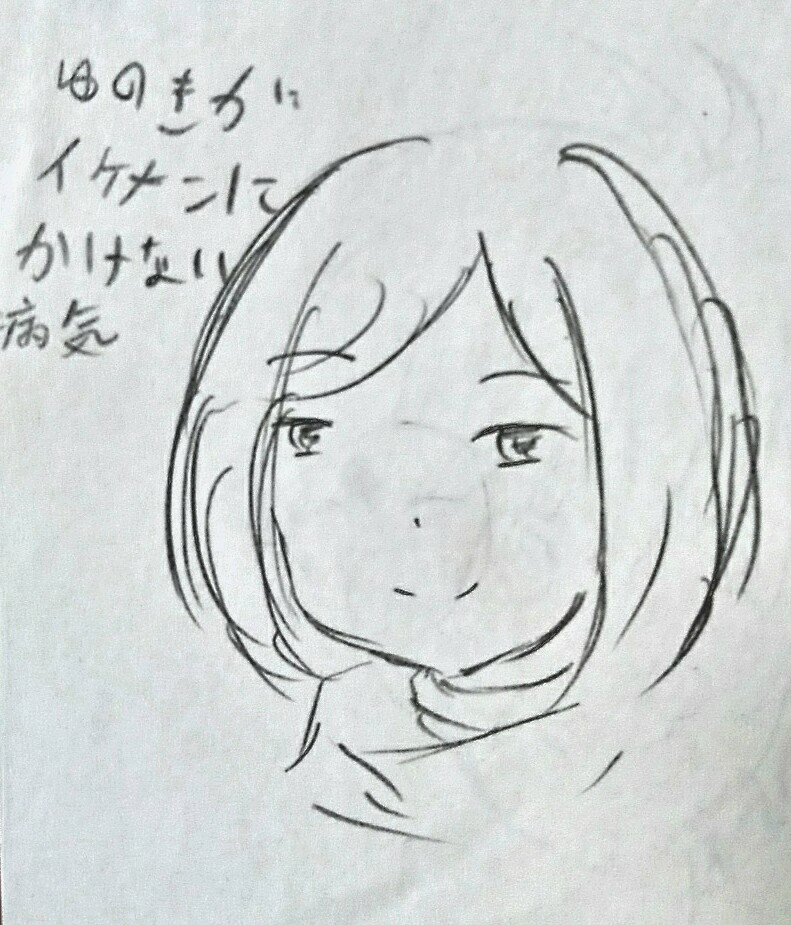 ゆのきが
イケメンに
かけない
病気